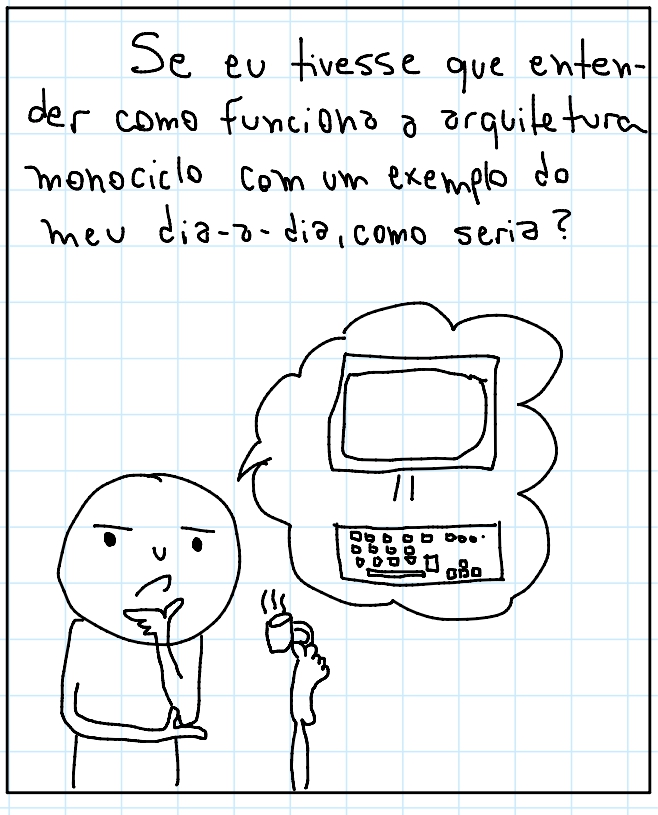 Se eu tivesse que enten-
der como funciona a arquitetura
monociclo com um exemplo do
meu dia-a-dia, como seria?